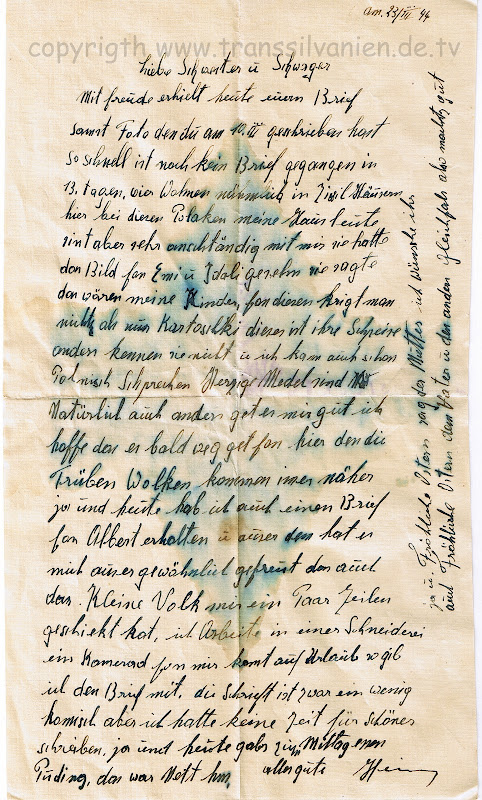 am. 23/III 44
copyrigth www.transsilvanien.de.tv
Liebe Schwester u Schwager
Mit freude erhielt heute euern Brief
samt Foto den du am 10. III geschrieben hast
so schnell ist noch kein Brief gegangen in
13. tagen, wier Wohnen nähmlich in Zivil Häusern
hier bei diesen Polaken meine Hausleute
sint aber sehr anschtändig mit mir sie hatte
das Bild fon Emi u Idali gesehn sie sagte
das wären meine Kinder, fon diesen krigt man
nichts als nur Kartoschki dieses ist ihre Schpeise
anders kennen sie nicht u ich kann auch schon
Polnisch Schprechen Herzige Medel sind
Natürlich auch anders get es mir gut ich
hoffe das es bald weg get fon hier den die
Trüben Wolken kommen imer näher
ja und heute hab ich auch einen Brief
fon Albert erhalten u auser dem hat es
mich auser gewähnlich gefreut das auch
das Kleine Volk mir ein Paar Zeilen
geschickt hat, ich Arbeite in einer Schneiderei
ein Kamerad fon mir komt auf Urlaub so gib
ich den Brief mit, die Schrieft ist zwar ein wenig
komisch aber ich hatte keine Zeit für schönes
schreiben, ja und heute gabs zum Mittagessen
Puding, das war Nett hm, alles gute
ja u Fröhliche Ostern sag der Mutter ich wünsche ihr
auch Fröhliche Ostern dem Vater u den andern gleichfals also machts gut